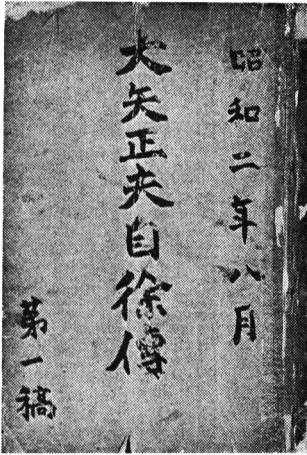 昭和二年八月
大矢正夫自徐傳
第一稿